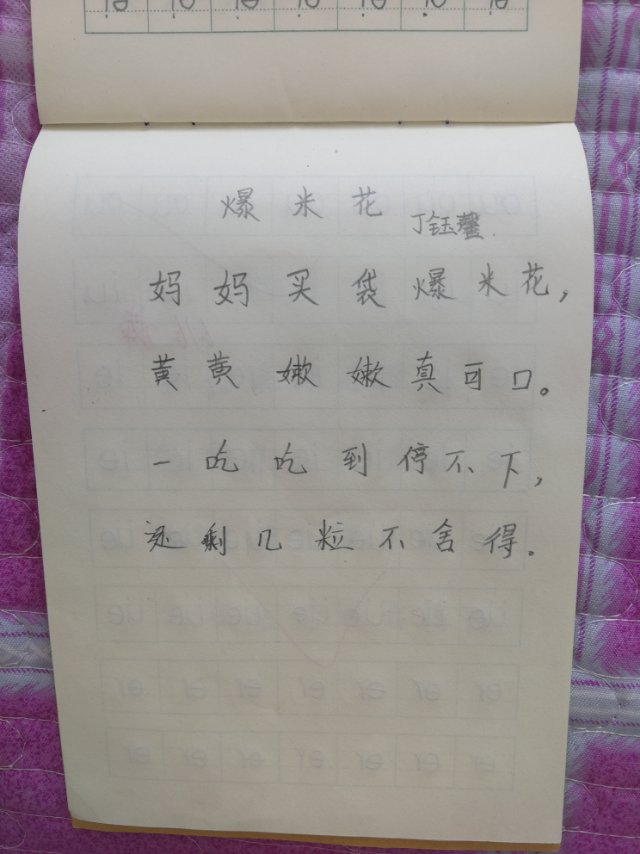 爆米花
丁钰馨
妈妈买袋爆米花，
黄黄嫩嫩真可口。
一吃吃到停不下，
还剩几粒不舍得。